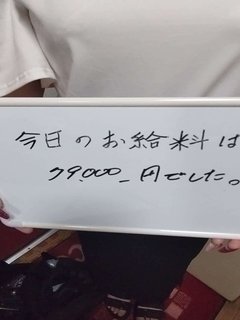 今日のお給料は
79,000_円でした。